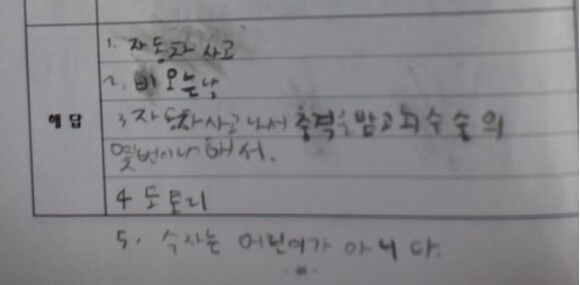 1. 자동차 사고
2. 비 오는 날
해 답
3 자동차 사고 나서 충격을 받고 뇌수술의
몇번이나 해서.
4 도토리
5. 숙자는 어린이가 아니다.